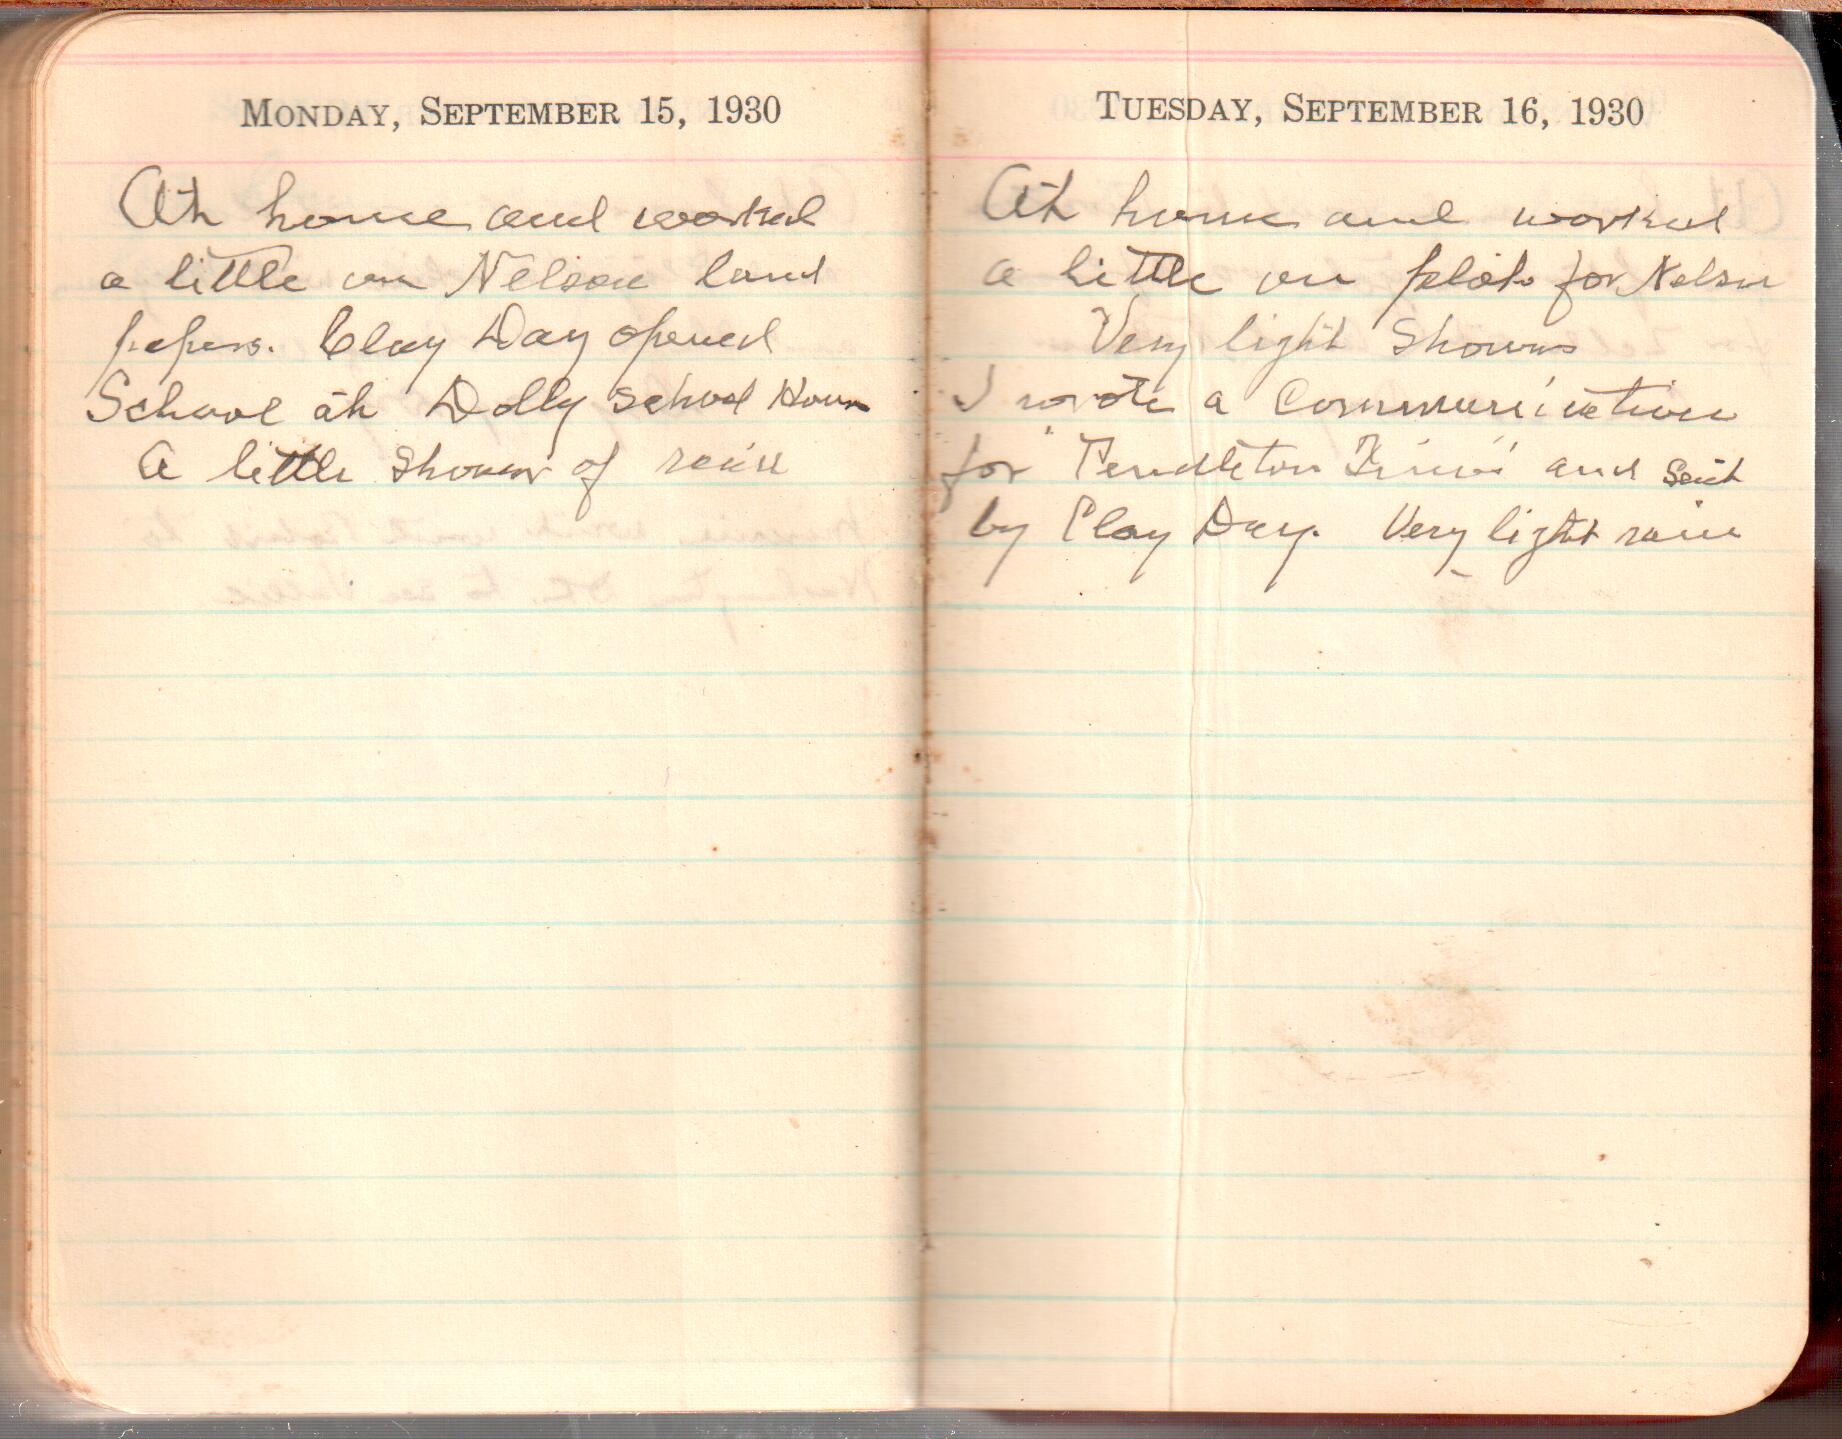 MONDAY, SEPTEMBER 15, 1930
At home and worked
a little on Nelson land
papers. Clay Day opened
School at Dolly school House
A little shower of rain
TUESDAY, SEPTEMBER 16, 1930
At home and worked
a little on plot for Nelson
Very light Showers
I wrote a Communication
for "Pendleton Times" and sent
by Clay Day. Very light rain